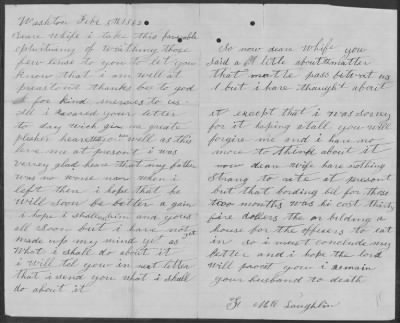 Washton Febe 5th 1862
Deare Whife i take this favrable
opituniny of Writhing those
few lines to you to let you
know that i am will at
preasant thanks be to god
for kind merceis to us.
all i receved your letter
to day wich give me greate
plesher hearing your well as this
leve me at present i was
verrey glad heare that my father
was no worse now when i
left then i hope that he
will soon be better a gain
i hope i shall him and yous
all soon but i have not yet
made up my mind yet as
what i shall do about it
i will tel you in next letter
that i send you what i shall
do about it
So now dear Whife you
said a litle about matter
that the pass bitwat us
but i have thought about
it except that i was sorrey
for it hoping atall you will
forgive me and i han no
more to think about it
now dear wife hare nothing
Strang to rite at present
but that bording bil for those
two months was is cost thirty
five dollers the or bilding a
house for the officers to eat
in so i must conclude my
letter and i hope the lord
will provet you i remain
your husband to death
Mc Laughlin